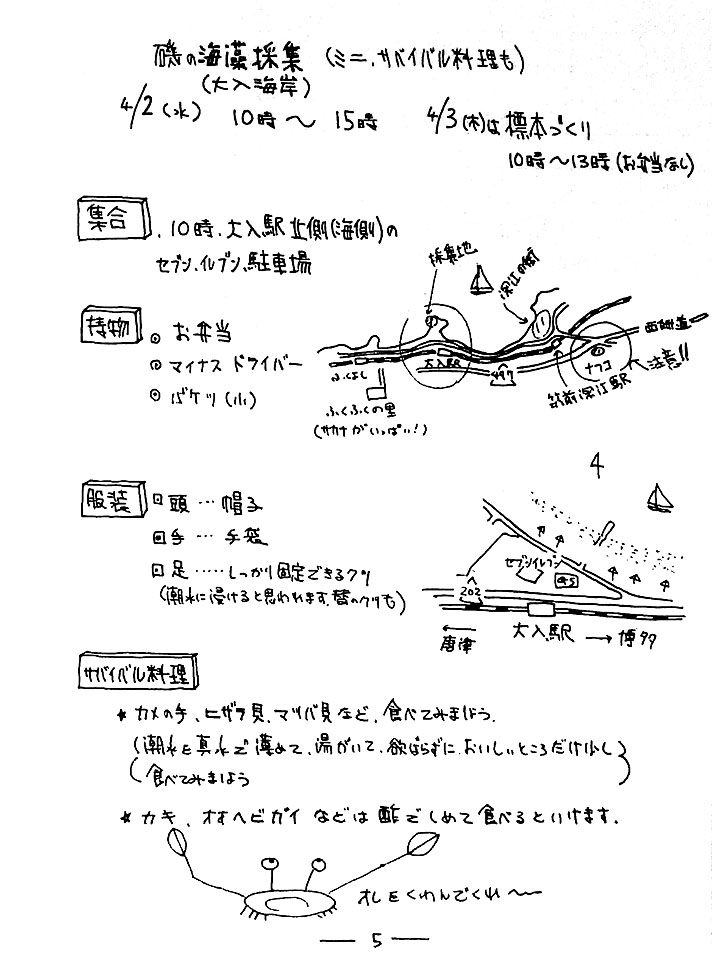 磯の海藻採集 (ミニ、サバイバル料理も)
(大入海岸)
4/2(水) 10時～15時 4/3(木)は標本づくり
10時～13時(お弁当なし)
集合
、10時、大入駅北側(海側)の
セブン、イレブン、駐車場
採集地
深江の街
持物
お弁当
マイナスドライバー
バケツ(小)
大入駅
497
ナフコ
注意!!
筑前深江駅
ふくふくの里
(サカナがいっぱい!)
4
服装
頭…帽子
手…手袋
足……しっかり固定できるクツ
(潮水に浸けると思われます、替のクツも)
セブンイレブン
202
大入駅
唐津
博多
サバイバル料理
★カメの手、ヒザラ貝、マツバ貝など、食べてみましょう。
(潮水を真水で薄めて、湯がいて、欲ばらずに、おいしいところだけ少し
食べてみましょう)
★カキ、オオヘビガイなどは酢でしめて食べるといけます。
オレをくわんでくれ～
― 5 ―